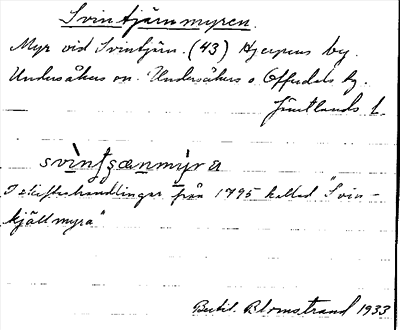 Svintjärnmyren.
Myr vid Svintjärn. (43) Hjerpens by.
Undersåkers sn. Undersåkers o Offerdals tg.
Jämtlands l.
svìntʃænmỳra
I skifteshandlingar från 1795 kallad "Svin-
kjällmyra"
Bertil. Blomstrand 1933